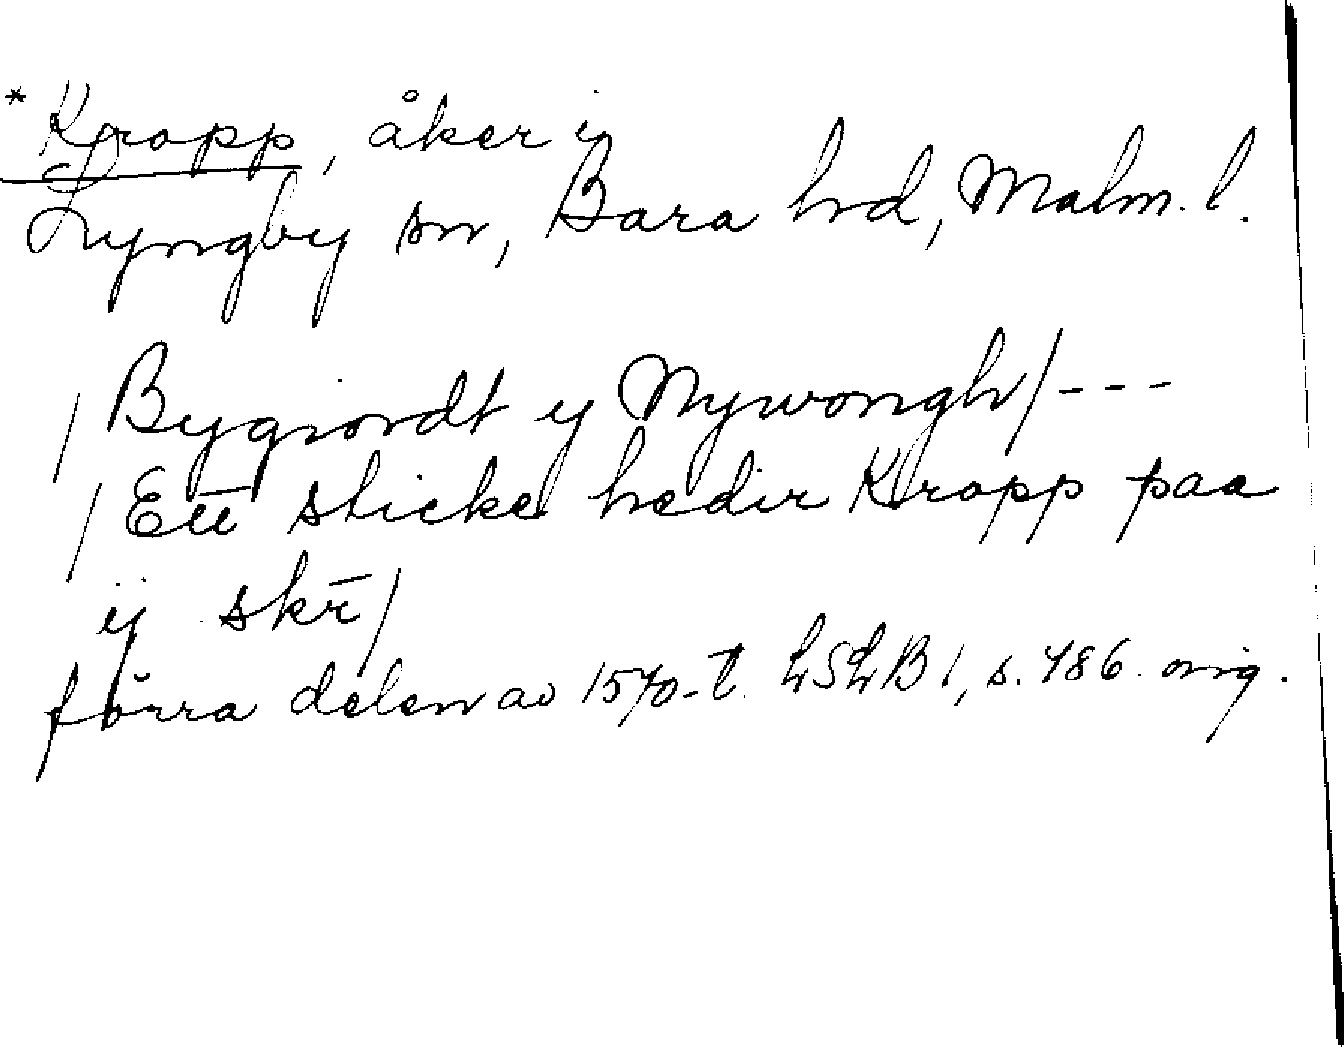 * Kropp, åker i
Lyngby sn, Bara hd, Malm. l.
/ Bygiordt y Nywongh / ---
/ Ett sticke hedir Kropp paa
ij skr̄ /
förra delen av 1570-t. LSLB 1, s. 486. orig.